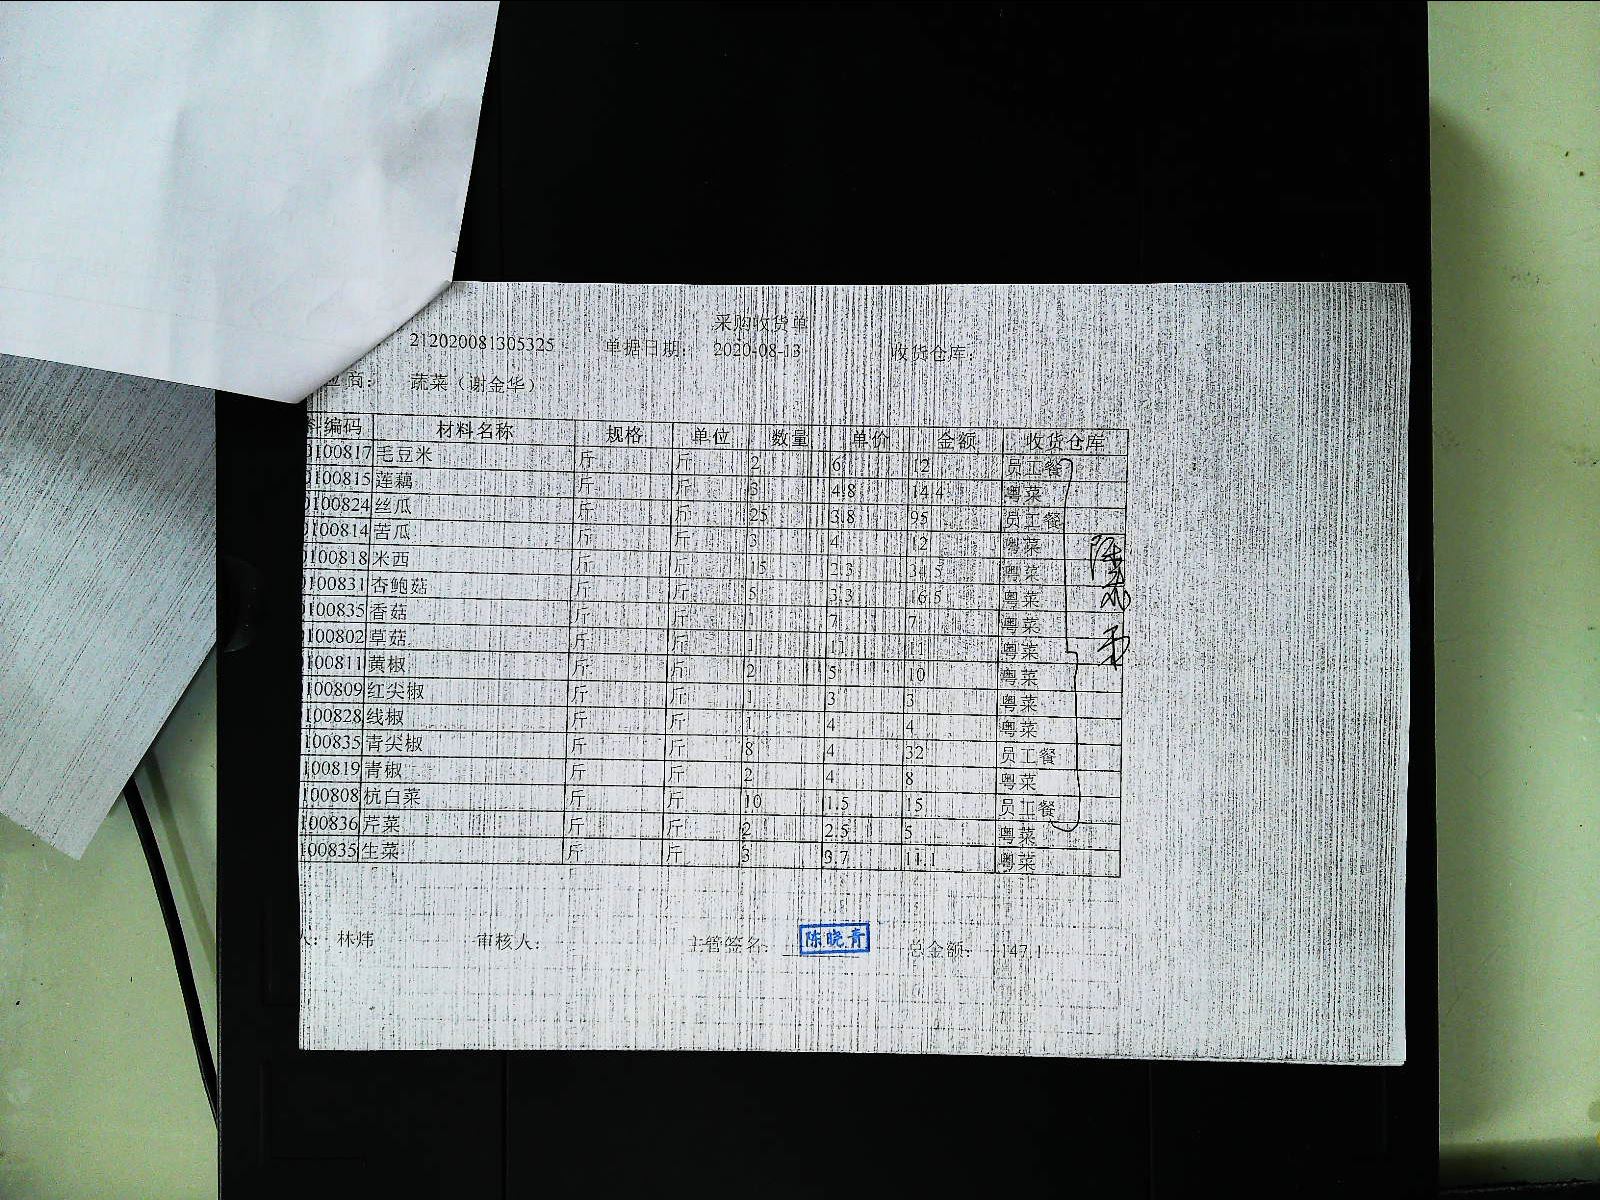 采购收货单
212020081305325 单据日期: 2020-08-13 收货仓库:
应商: 蔬菜（谢金华）
料编码 材料名称 规格 单位 数量 单价 金额 收货仓库
0100817 毛豆米 斤 斤 2 6 12 员工餐
0100815 莲藕 斤 斤 3 4.8 14.4 粤菜
0100824 丝瓜 斤 斤 25 3.8 95 员工餐
0100814 苦瓜 斤 斤 3 4 12 粤菜
0100818 米西 斤 斤 15 2.3 34.5 粤菜
0100831 杏鲍菇 斤 斤 5 3.3 16.5 粤菜
0100835 香菇 斤 斤 1 7 7 粤菜
0100802 草菇 斤 斤 1 11 11 粤菜
0100811 黄椒 斤 斤 2 5 10 粤菜
0100809 红尖椒 斤 斤 1 3 3 粤菜
0100828 线椒 斤 斤 1 4 4 粤菜
100835 青尖椒 斤 斤 8 4 32 员工餐
100819 青椒 斤 斤 2 4 8 粤菜
100808 杭白菜 斤 斤 10 1.5 15 员工餐
100836 芹菜 斤 斤 2 2.5 5 粤菜
100835 生菜 斤 斤 3 3.7 11.1 粤菜
人: 林炜 审核人: 主管签名: 陈晓青 总金额: 147.1